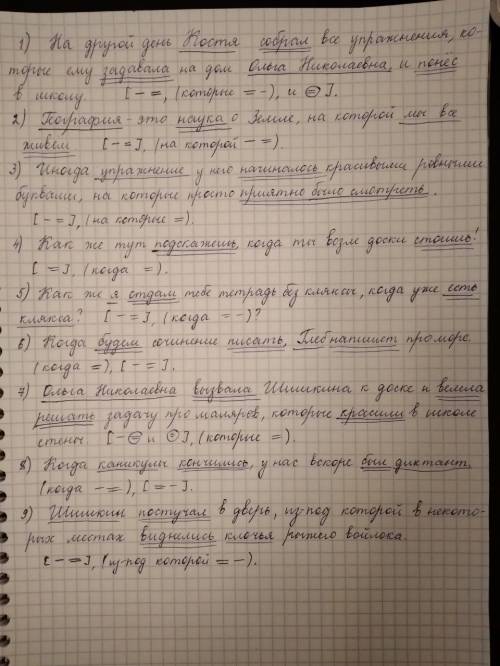 1) На другой день Костя собрал все упражнения, ко-
торые ему задавала на дом Ольга Николаевна, и понёс
в школу. [ - =, (которые = -), и ⊜ ].
2) География - это наука о Земле, на которой мы все
живём [ - = ], (на которой - =).
3) Иногда упражнение у него начиналось красивыми ровными
буквами, на которые просто приятно было смотреть.
[ - = ], (на которые =).
4) Как же тут подскажешь, когда ты возле доски стоишь!
[ = ], (когда =).
5) Как же я отдам тебе тетрадь без кляксы, когда уже есть
клякса? [ - = ], (когда = -)?
6) Когда будем сочинение писать, Глеб напишет про море.
(когда =), [ - = ].
7) Ольга Николаевна вызвала Шишкина к доске и велела
решать задачу про маляров, которые красили в школе
стены. [ - ⊜ и ⊜ ], (которые =).
8) Когда каникулы кончились, у нас вскоре был диктант.
(когда - =), [ = - ].
9) Шишкин постучал в дверь, из-под которой в некото-
рых местах виднелись клочья рыжего войлока.
[ - = ], (из-под которой = -).